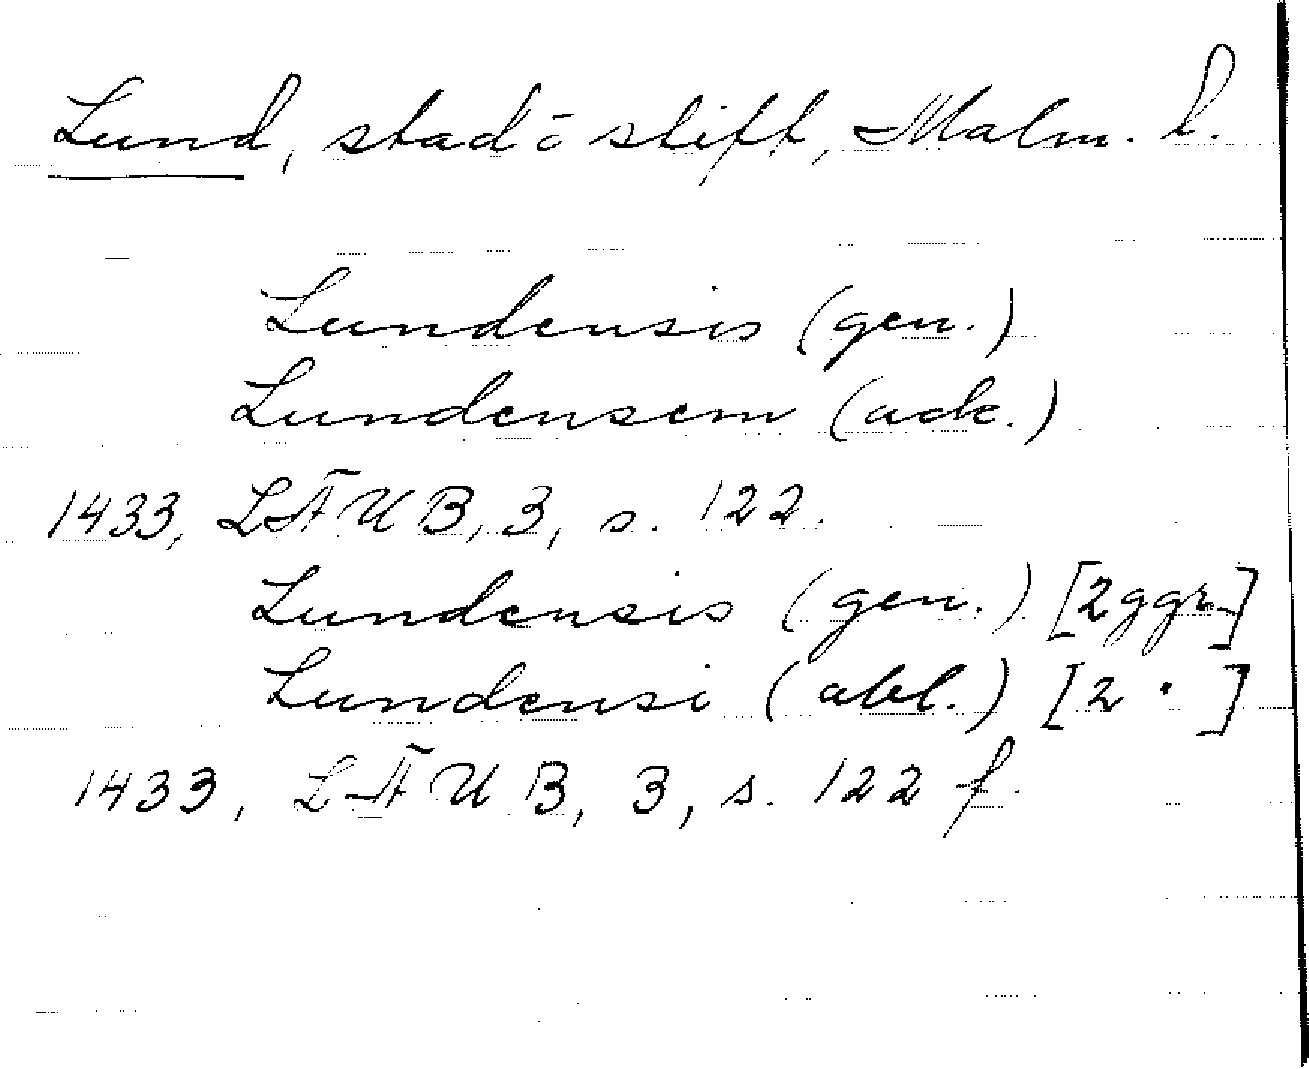 Lund, stad o stift, Malm. l.
Lundensis (gen.)
Lundensem (ack.)
1433, LÄUB, 3, s. 122.
Lundensis (gen.) [2 ggr.]
Lundensi (abl.) [2 " ]
1433, LÄUB, 3, s. 122 f.